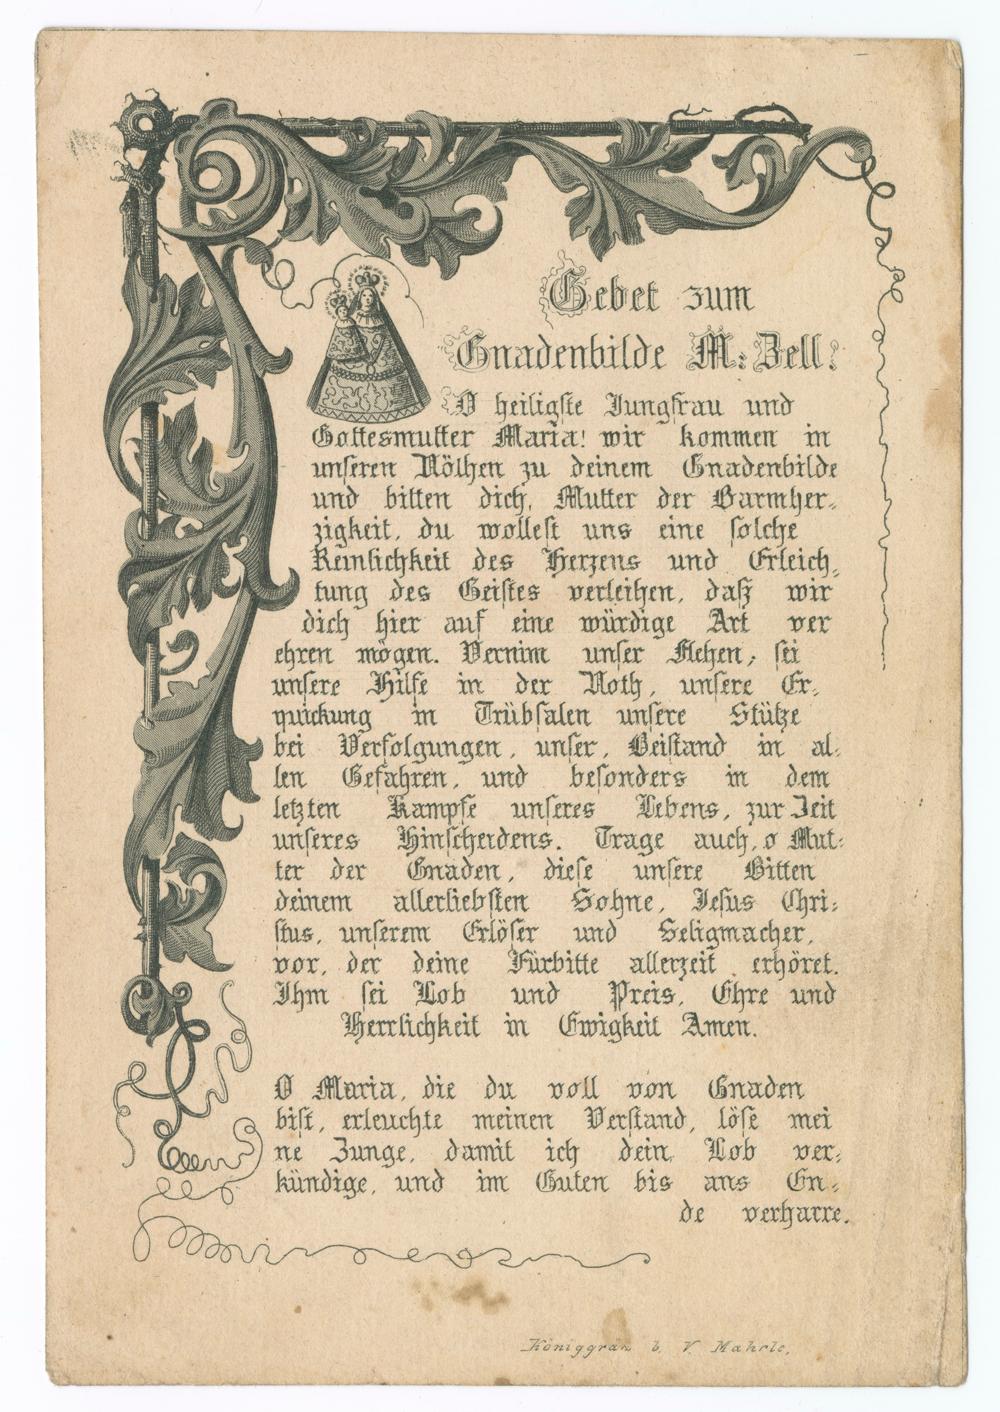 Gebet zum
Gnadenbilde M: Zell:
O heiligste Jungfrau und
Gottesmutter Maria! wir kommen in
unseren Nöthen zu deinem Gnadenbilde
und bitten dich, Mutter der Barmher-
zigkeit, du wollest uns eine solche
Reinlichkeit des Herzens und Erleich-
tung des Geistes verleihen, daß wir
dich hier auf eine würdige Art ver
ehren mögen. Vernim unser Flehen, sei
unsere Hilfe in der Noth, unsere Er-
quickung in Trübsalen unsere Stütze
bei Verfolgungen, unser, Beistand in al-
len Gefahren, und besonders in dem
letzten Kampfe unseres Lebens, zur Zeit
unseres Hinscheidens. Trage auch, o Mut-
ter der Gnaden, diese unsere Bitten
deinem allerliebsten Sohne, Jesus Chri-
stus, unserem Erlöser und Seligmacher,
vor, der deine Fürbitte allerzeit erhöret.
Ihm sei Lob und Preis, Ehre und
Herrlichkeit in Ewigkeit Amen.
O Maria, die du voll von Gnaden
bist, erleuchte meinen Verstand, löse mei
ne Zunge, damit ich dein Lob ver-
kündige, und im Guten bis ans En-
de verharre.
Königgräz b. V. Mahrle.